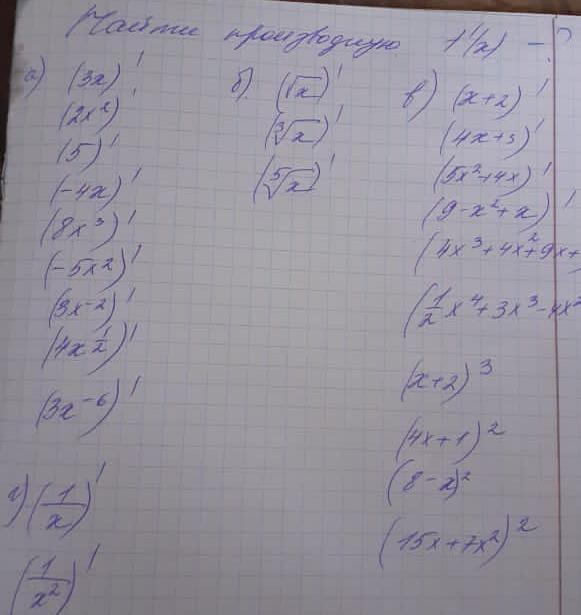 Найти производную f'(x) - ?
а) (3x)'
(2x²)'
(5)'
(-4x)'
(8x³)'
(-5x²)'
(3x⁻²)'
(4x^½)'
(3x⁻⁶)'
б) (√x)'
(∛x)'
(⁵√x)'
в) (x+2)'
(4x+3)'
(5x²+4x)'
(9-x²+x)'
(4x³+4x²+9x+
(½x⁴+3x³-4x²
(x+2)³
(4x+1)²
(8-x)²
(15x+7x²)²
г) (1/x)'
(1/x²)'